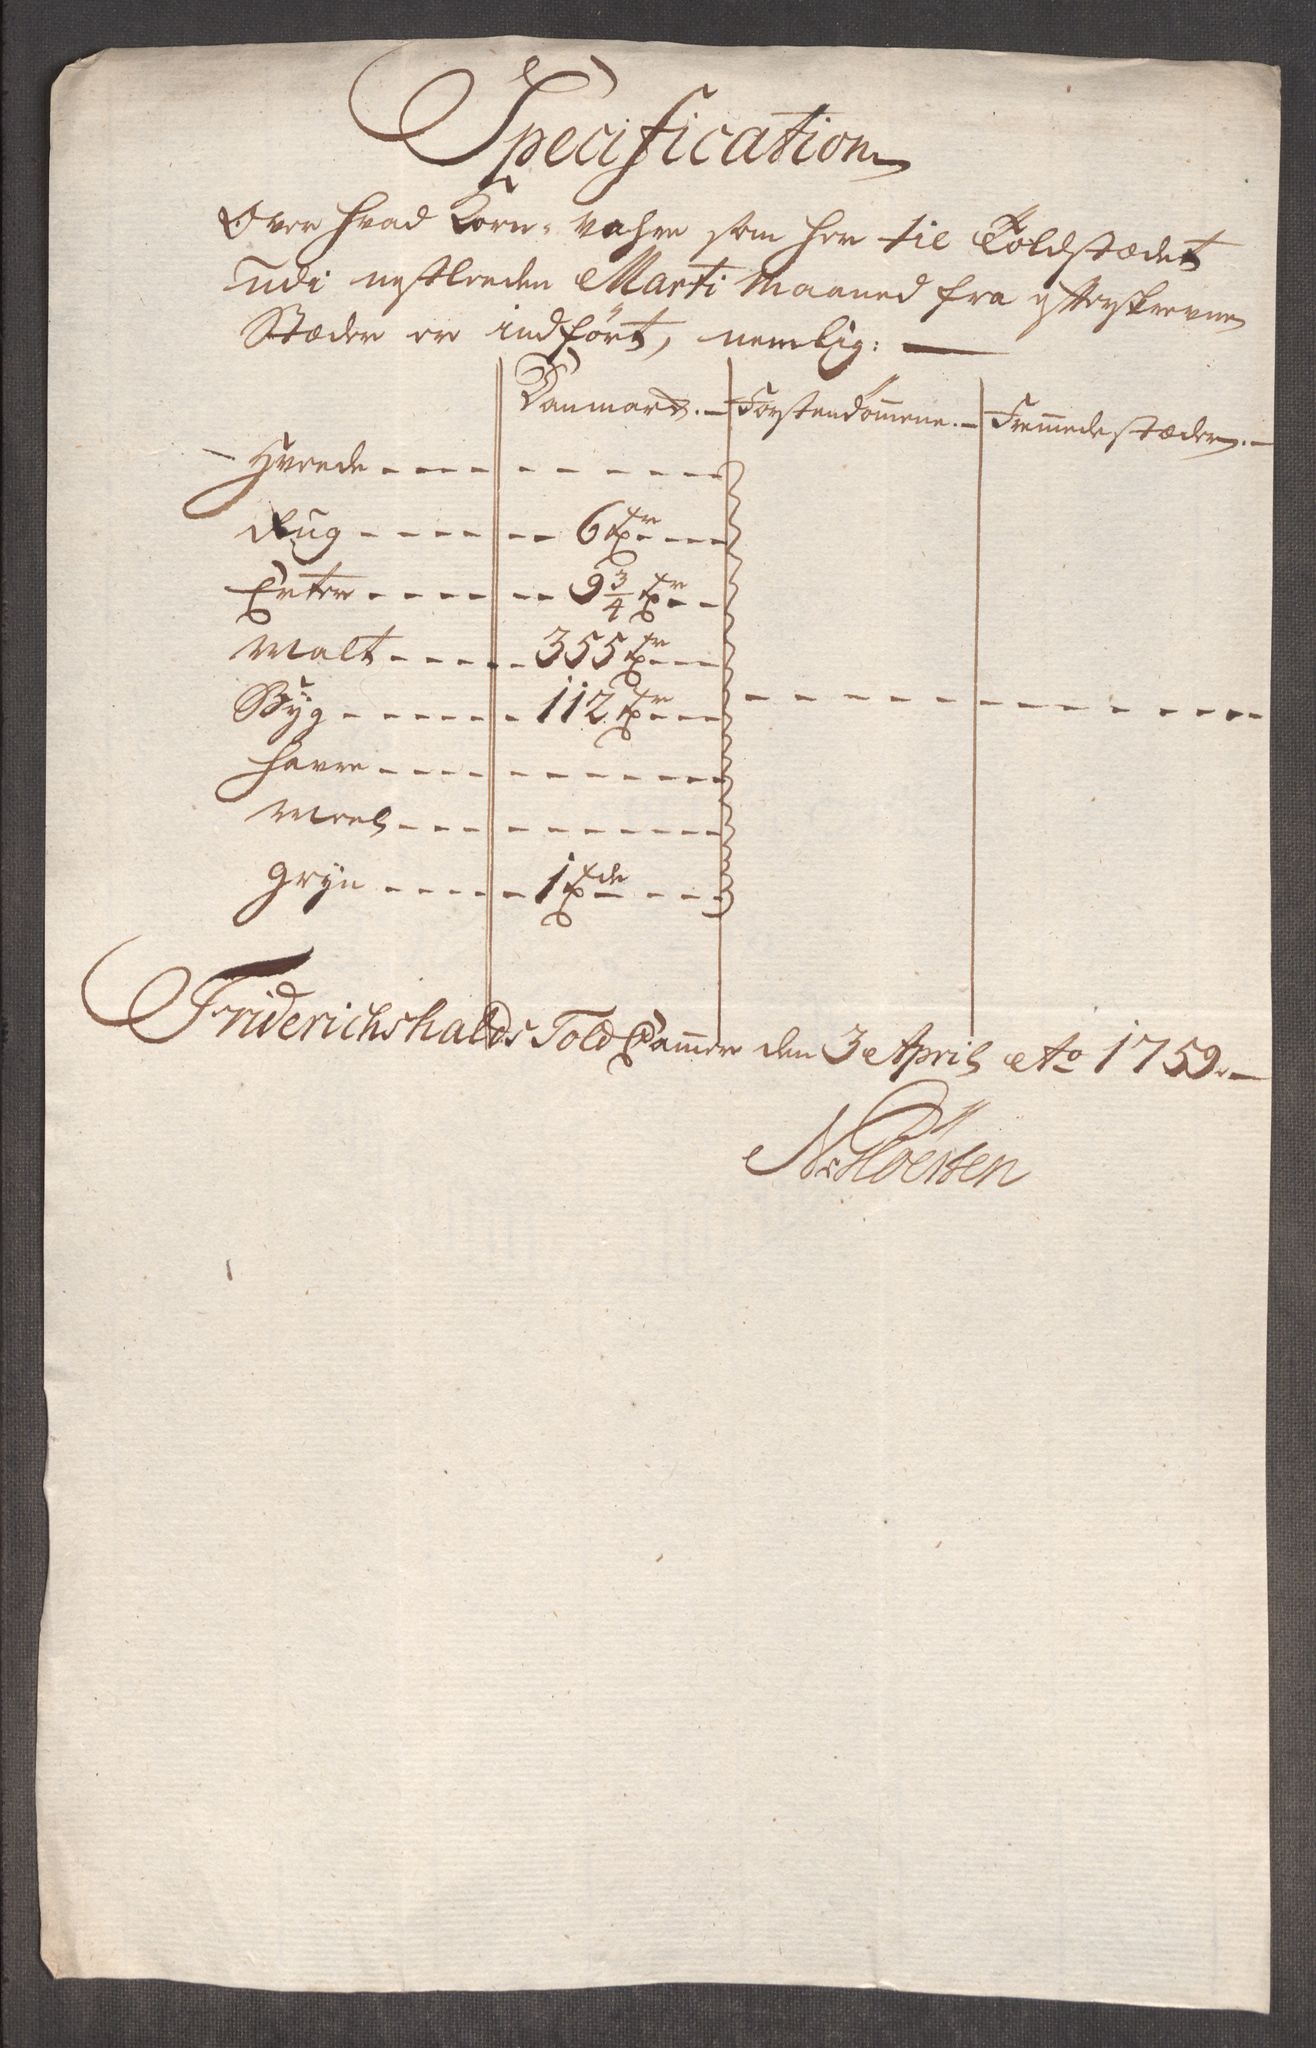 Specification
Over hvad Korn-vahre som her til Toldstædet
udi nestleeden Marti Maaned fra efterskrevne
Stæder er indført, nemlig:
Danmark. Førstendømmene. Fremmede stæder.
Hvede
Rug 6 Tr
Erter 9 3/4 Tr
Malt 355 Tr
Byg 112 Tr
Havre
Meel
Gryn 1 Tde
Friderichshalds Told Cammer den 3 April Ao 1759.